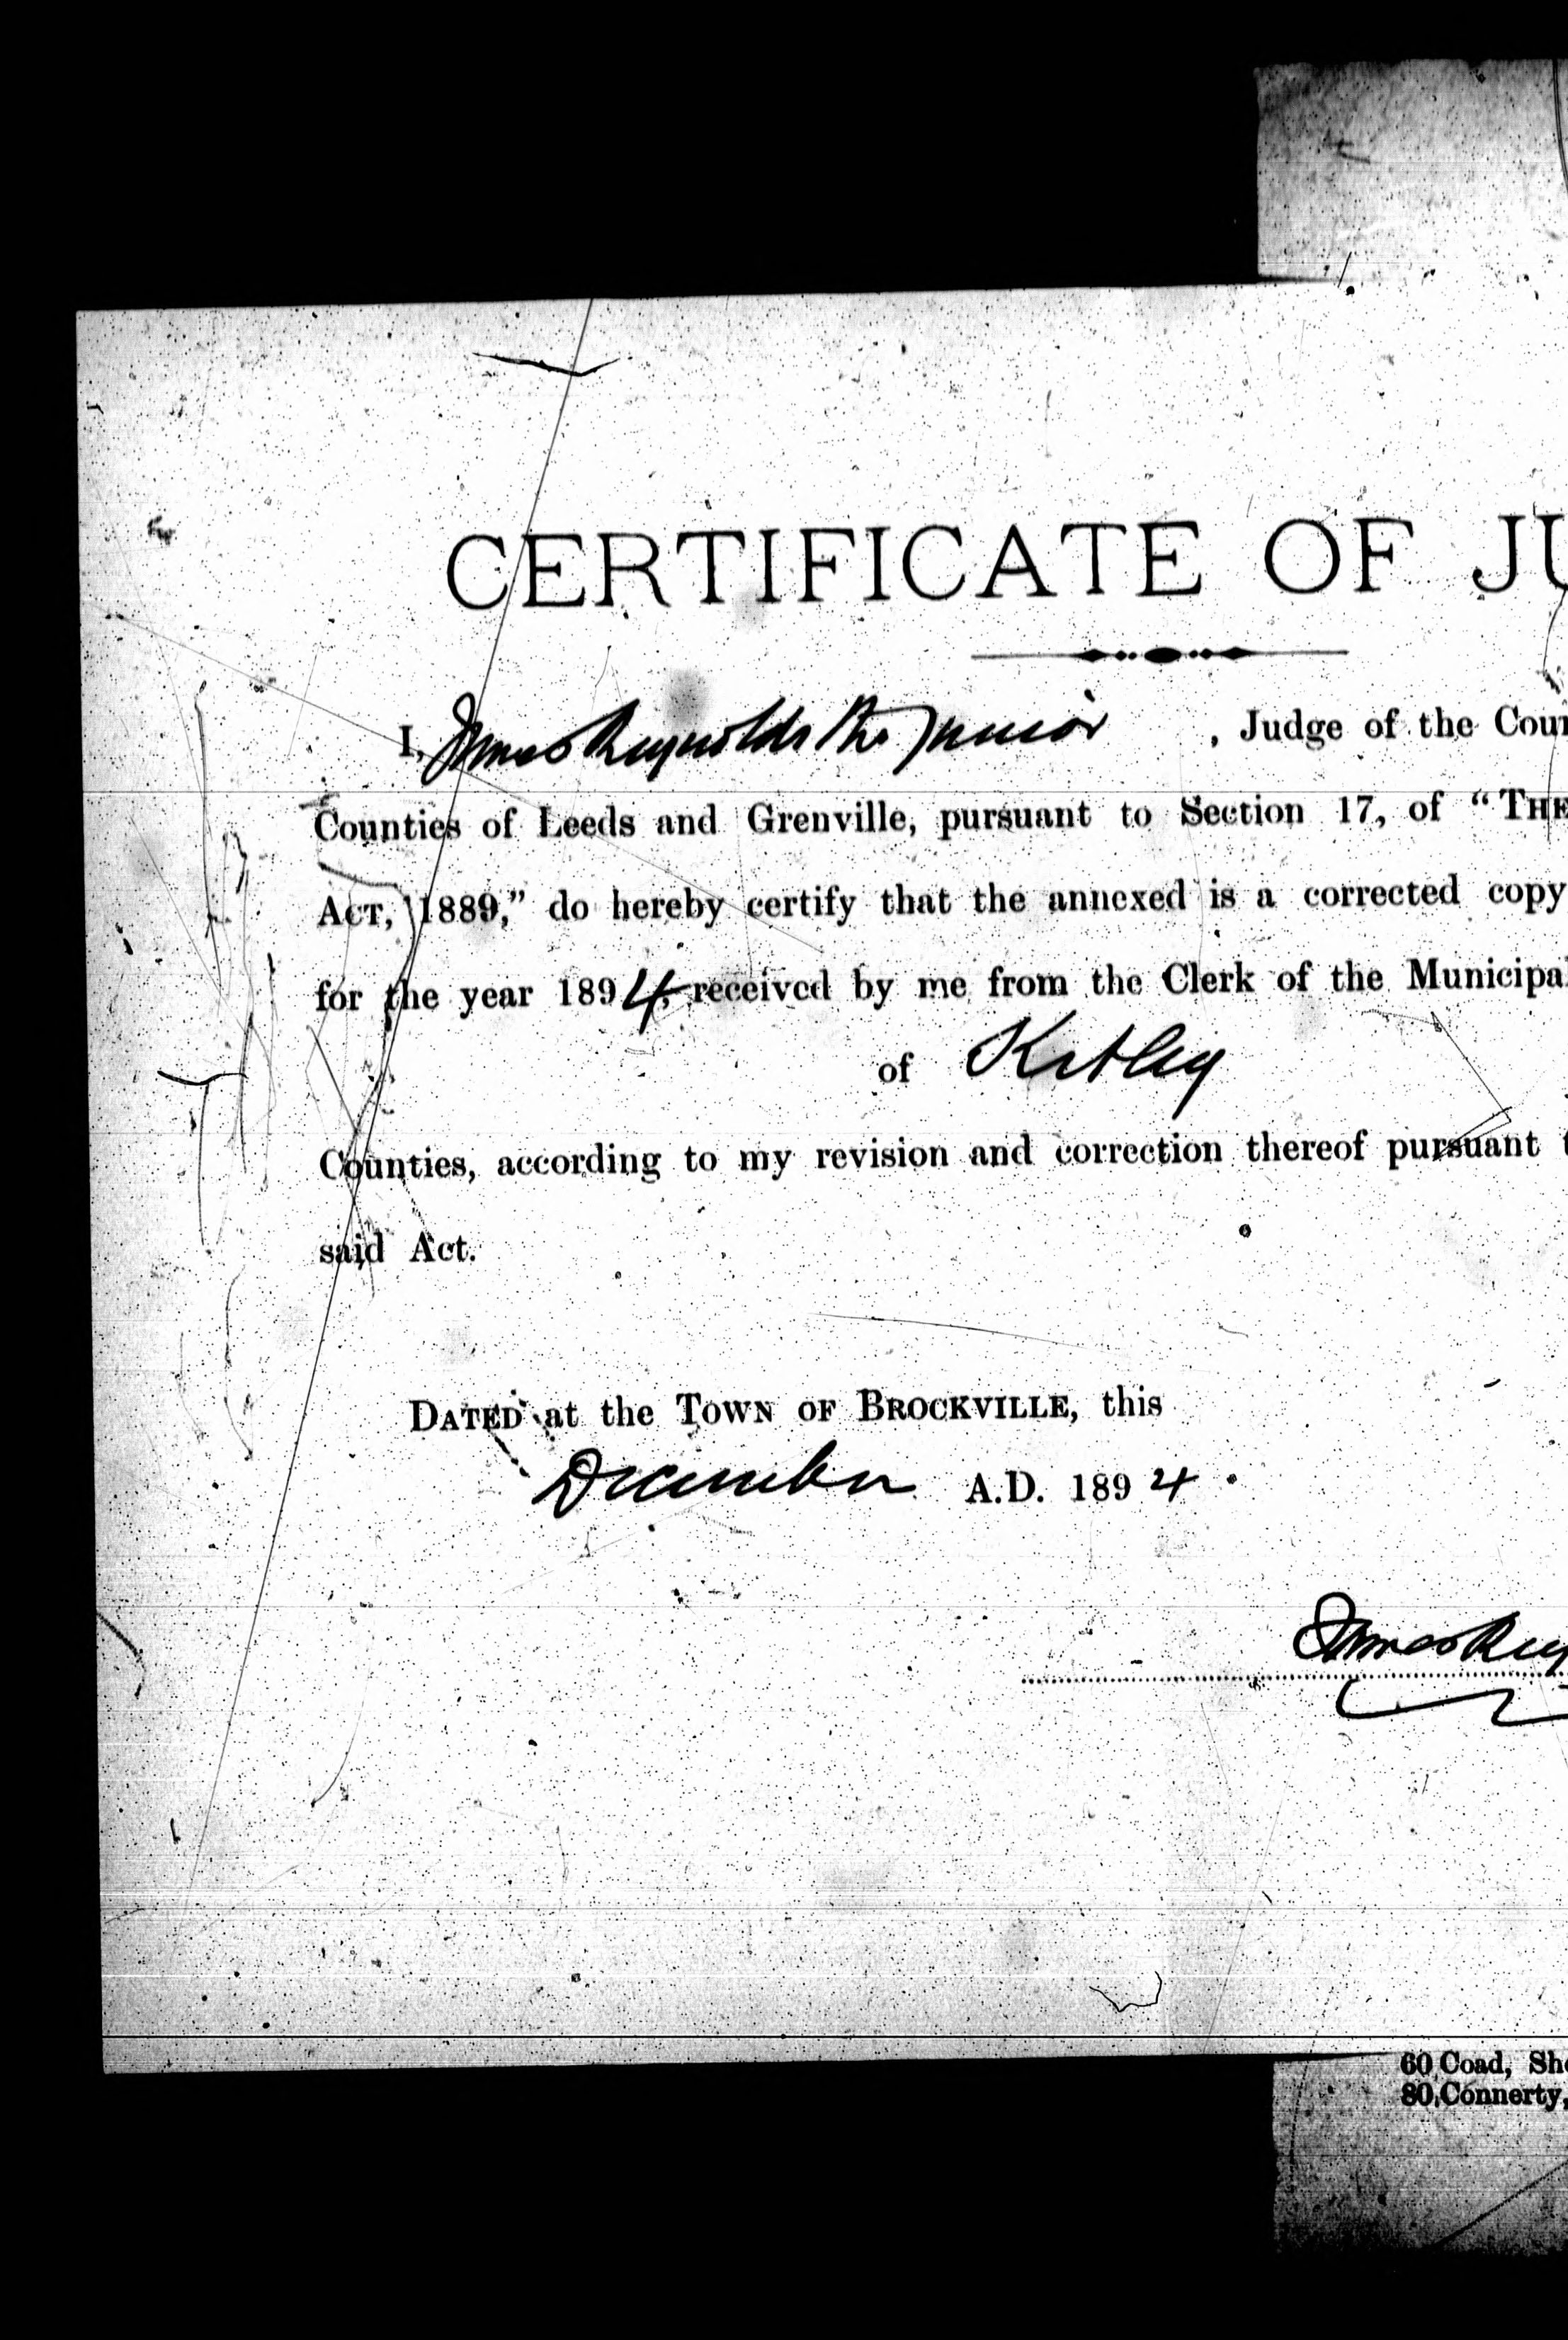 CERTIFICATE OF JU
I, James Reynolds the Junior , Judge of the Coun
Counties of Leeds and Grenville, pursuant to Section 17, of “THE
ACT, 1889,” do hereby certify that the annexed is a corrected copy
for the year 1894, received by me from the Clerk of the Municipal
of Kitley
Counties, according to my revision and correction thereof pursuant t
said Act.
DATED at the TOWN OF BROCKVILLE, this
December A.D. 1894.
James Rey
60 Coad, Sh
80 Connerty,